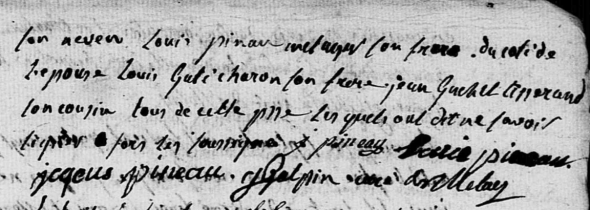 son neveu Louis pinau metayer son frere . du coté de
l'epouse Louis Gatichcron son frere jean Guchet Tisserand
son cousin tous de cette psse lesquels ont dit ne savoir
signer fors les soussignés j pineau Louis pineau.
jaques pineau. Galpin curé de Melay